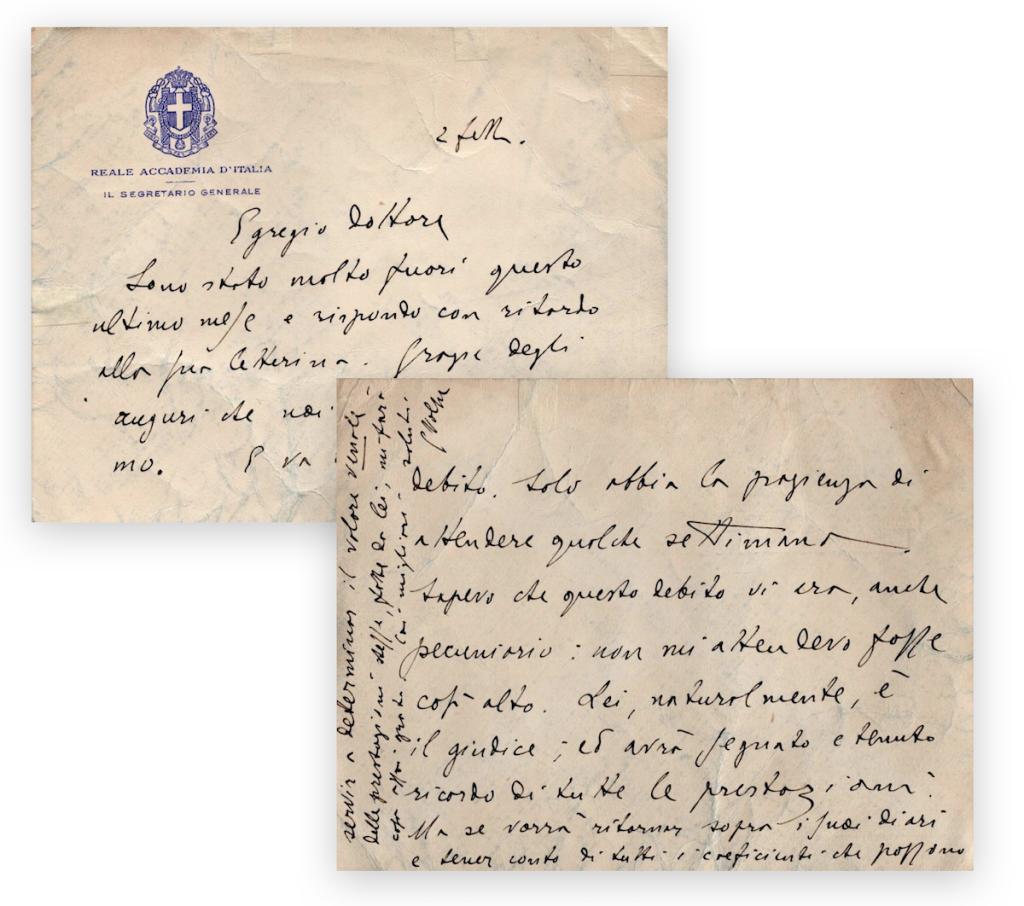 REALE ACCADEMIA D'ITALIA
IL SEGRETARIO GENERALE
2 febb.
Egregio dottore
Sono stato molto fuori questo
ultimo mese e rispondo con ritardo
alla sua letterina. Grazie degli
auguri che noi
mo. E va
debito. Solo abbia la pazienza di
attendere qualche settimana.
Sapevo che questo debito vi era, anche
pecuniario: non mi attendevo fosse
così alto. Lei, naturalmente, è
il giudice; ed avrà segnato e tenuto
ricordo di tutte le prestazioni.
Ma se vorrà ritornar sopra i suoi diari
e tener conto di tutti i coeficienti che possono
servir a determinar il valore venale
delle prestazioni stesse, fatte da lei, mi farà
cosa assai grata. Coi migliori saluti
G Volpe